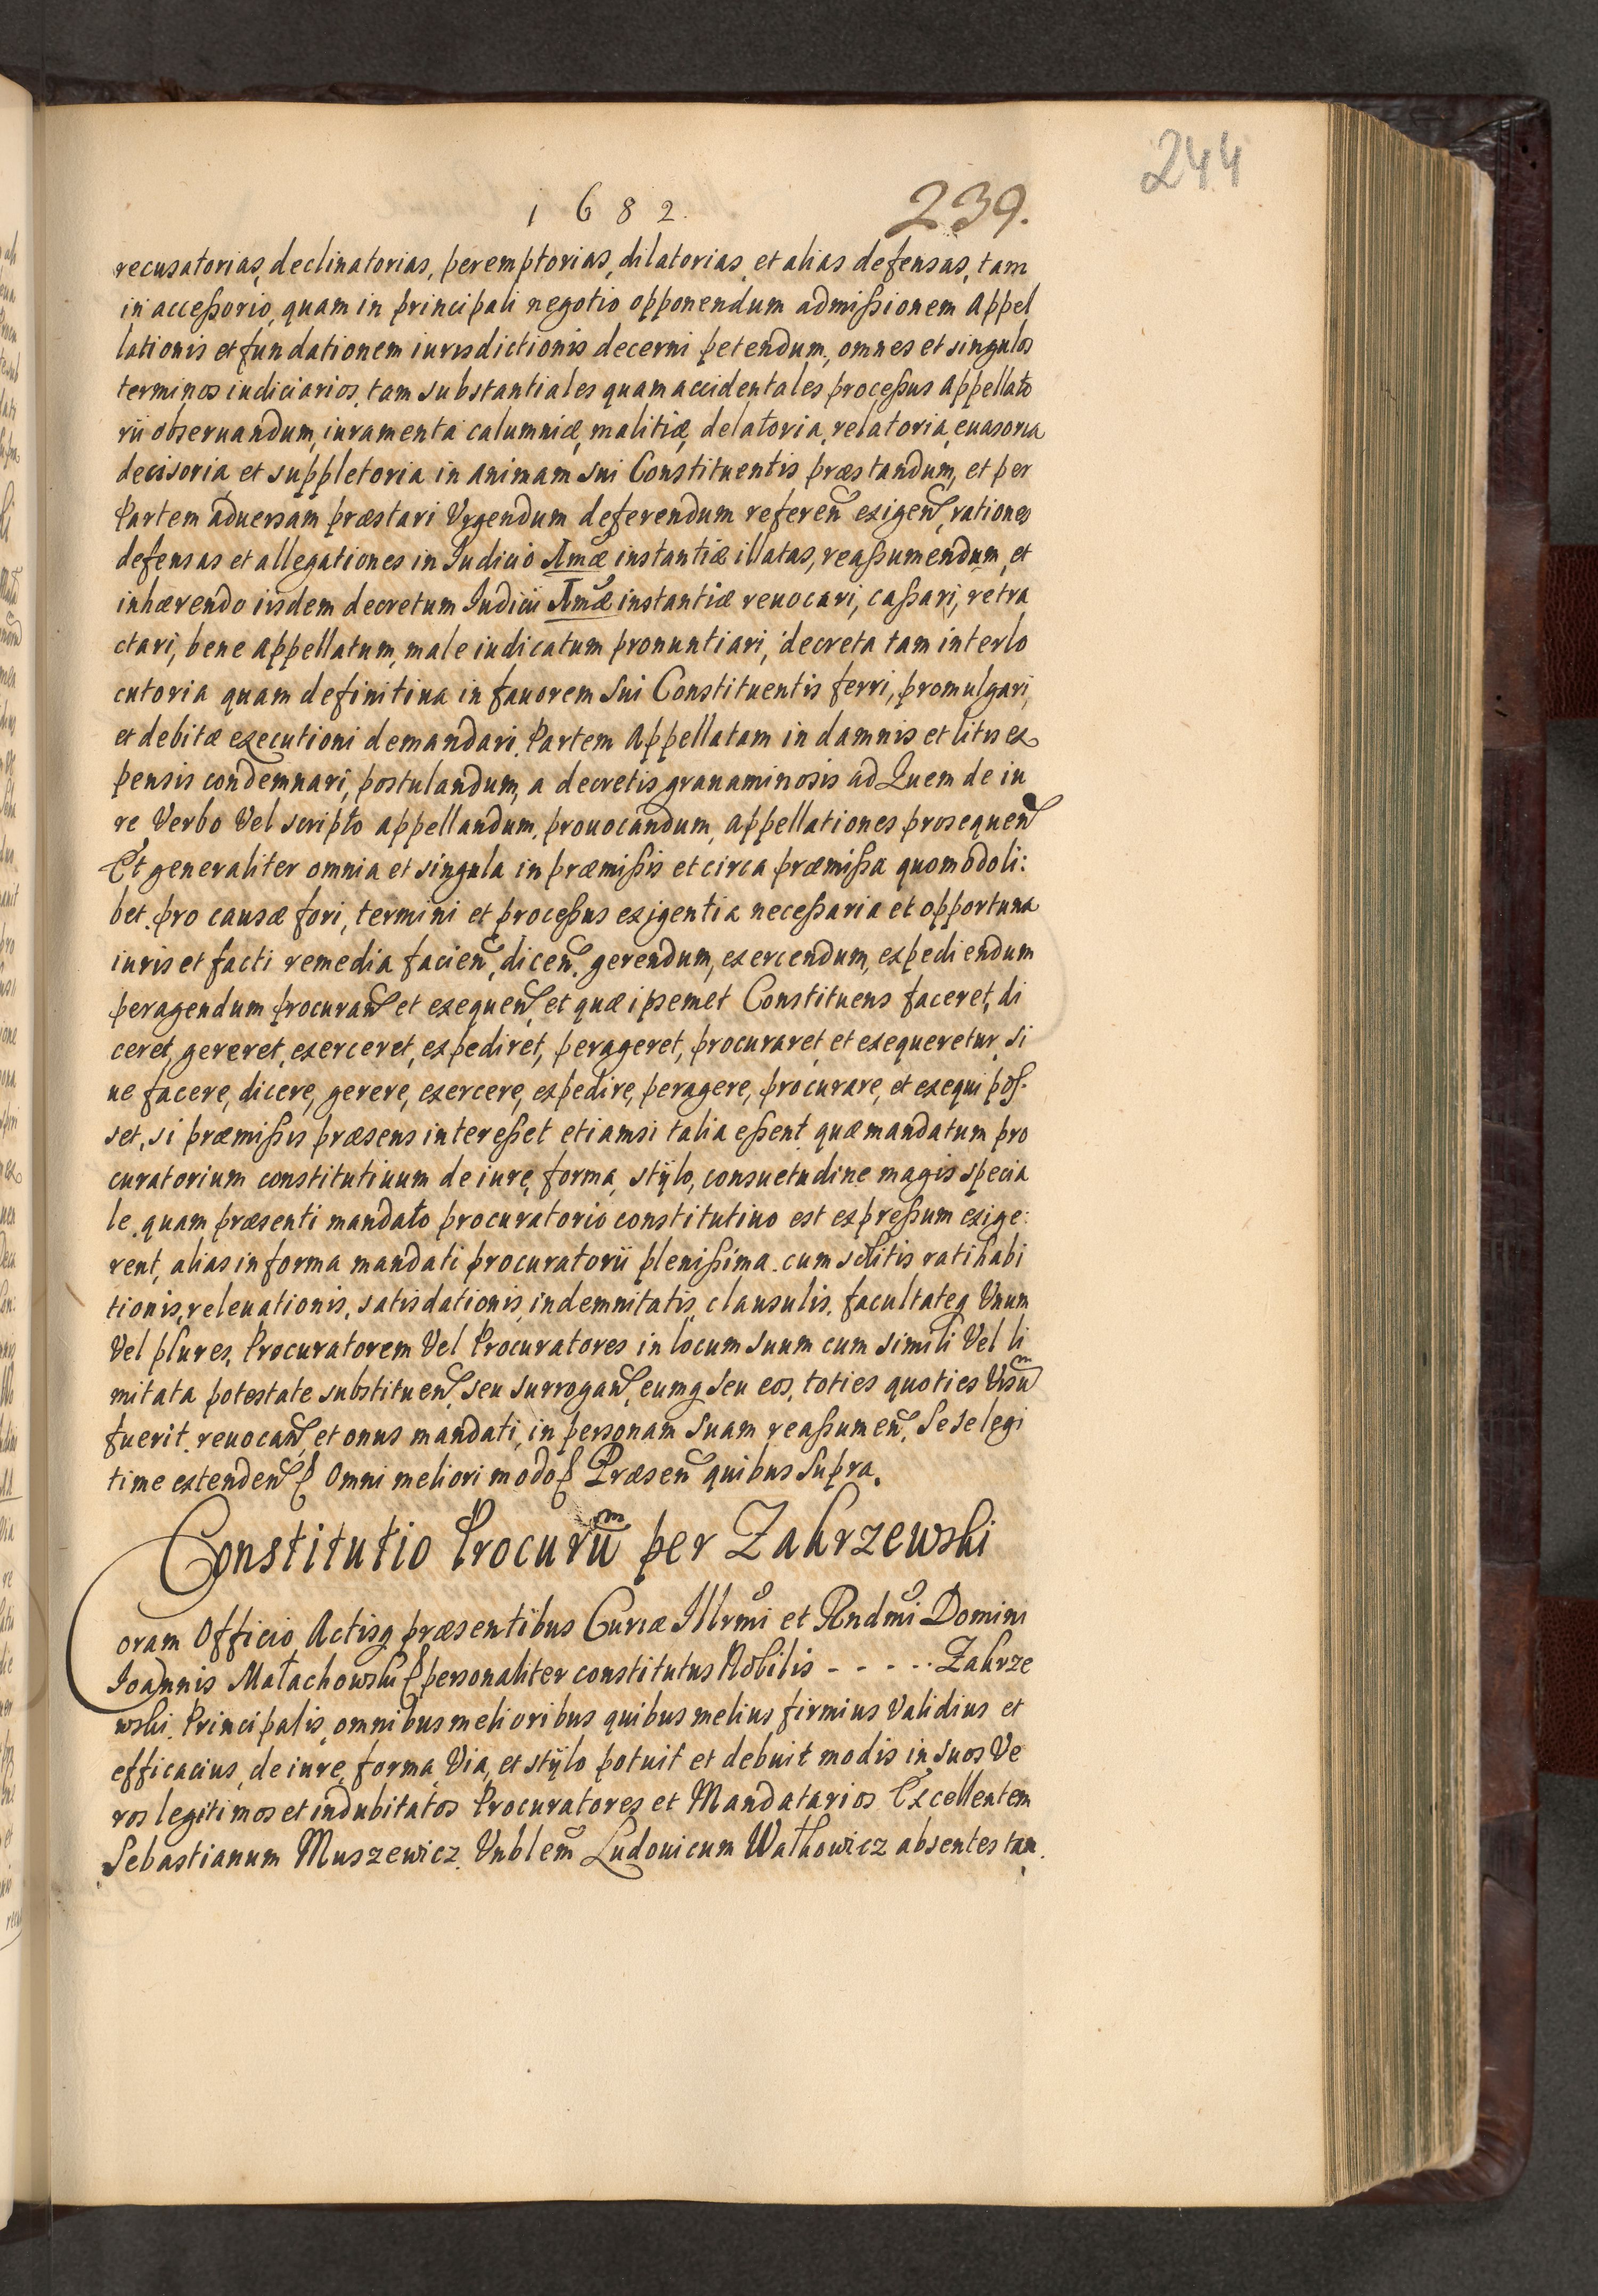 244
1682. 239.
recusatorias, declinatorias, peremptorias, dilatorias, et alias defensas, tam
in accessorio, quam in principali negotio opponendum admissionem Appel
lationis et fundationem iurisdictionis decerni petendum, omnes et singulos
terminos iudiciarios, tam substantiales quam accidentales processus Appellato
rii obseruandum, iuramenta calumniæ, malitiæ, delatoria, relatoria, euasoria
decisoria et suppletoria in animam sui Constituentis præstandum, et per
Partem aduersam præstari Vrgendum deferendum referen̄ exigen̄, rationes
defensas et allegationes in Iudicio Imæ instantiæ illatas, reassumendum, et
inhærendo iisdem decretum Iudicii Imæ instantiæ reuocari, cassari, retra
ctari, bene appellatum, male iudicatum pronuntiari, decreta tam interlo
cutoria quam definitiua in fauorem sui Constituentis ferri, promulgari,
et debitæ executioni demandari. Partem Appellatam in damnis et litis ex
pensis condemnari, postulandum, a decretis grauaminosis ad Quem de iu
re Verbo Vel scripto appellandum, prouocandum, appellationes prosequen̄
Et generaliter omnia et singula in præmissis et circa præmissa quomodoli:
bet. pro causæ fori, termini et processus exigentia necessaria et opportuna
iuris et facti remedia facien̄, dicen̄, gerendum, exercendum, expediendum
peragendum procuran̄ et exequen̄, et quæ ipsemet Constituens faceret, di
ceret, gereret, exerceret, expediret, perageret, procuraret et exequeretur, si
ue facere, dicere, gerere, exercere, expedire, peragere, procurare, et exequi pos-
set, si præmissis præsens interesset etiamsi talia essent quæ mandatum pro
curatorium constitutiuum de iure, forma, stylo, consuetudine magis specia
le, quam præsenti mandato procuratorio constitutiuo est expressum exige:
rent, alias in forma mandati procuratorii plenissima. cum solitis ratihabi
tionis, releuationis, satisdationis, indemnitatis, clausulis, facultateq Vnum
Vel plures, Procuratorem Vel Procuratores in locum suum cum simili Vel li
mitata potestate substituen̄, seu surrogan̄, eumq seu eos, toties quoties Visū
fuerit. reuocan̄, et onus mandati, in personam suam reassumen̄. Se se legi
time extenden̄ Omni meliori modo Præsen̄ quibus Supra.
Constitutio Procurūm per Zakrzewski
Coram Officio Actisq præsentibus Curiæ Illrmi et Rndmi Domini
Ioannis Małachowski personaliter constitutus Nobilis - - - - - Zakrze
wski. Principalis, omnibus melioribus quibus melius, firmius Validius et
efficacius, de iure, forma, Via, et stylo potuit et debuit modis in suos Ve
ros legitimos et indubitatos Procuratores et Mandatarios Excellentem
Sebastianum Muszewicz. Vnblem Ludouicum Wałkowicz absentes tan.